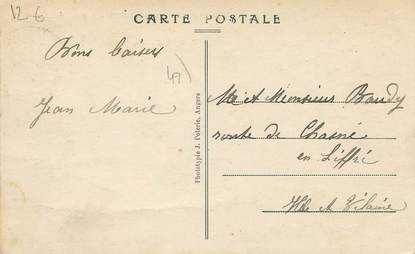 12-6
CARTE POSTALE
Bons baisers
49
Jean Marie
Phototypie J. Poterie, Angers
Me et Monsieur Baudy
route de Chasné
en Liffré
Ille et Vilaine